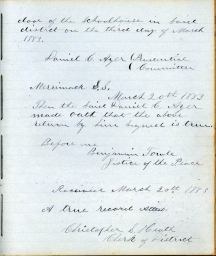 door of the Schoolhouse in said
district on the three day of March
1883.
Daniel C. Ayer } Prudential
Committee
Merrimack S.S.
March 20th 1883
Then the said Daniel C. Ayer
made oath that the above
return by him signed is true
Before me
Benjamin Towle
Justice of the Peace
Received March 20th 1883
A true record
Christopher S. Heath
Clerk of District